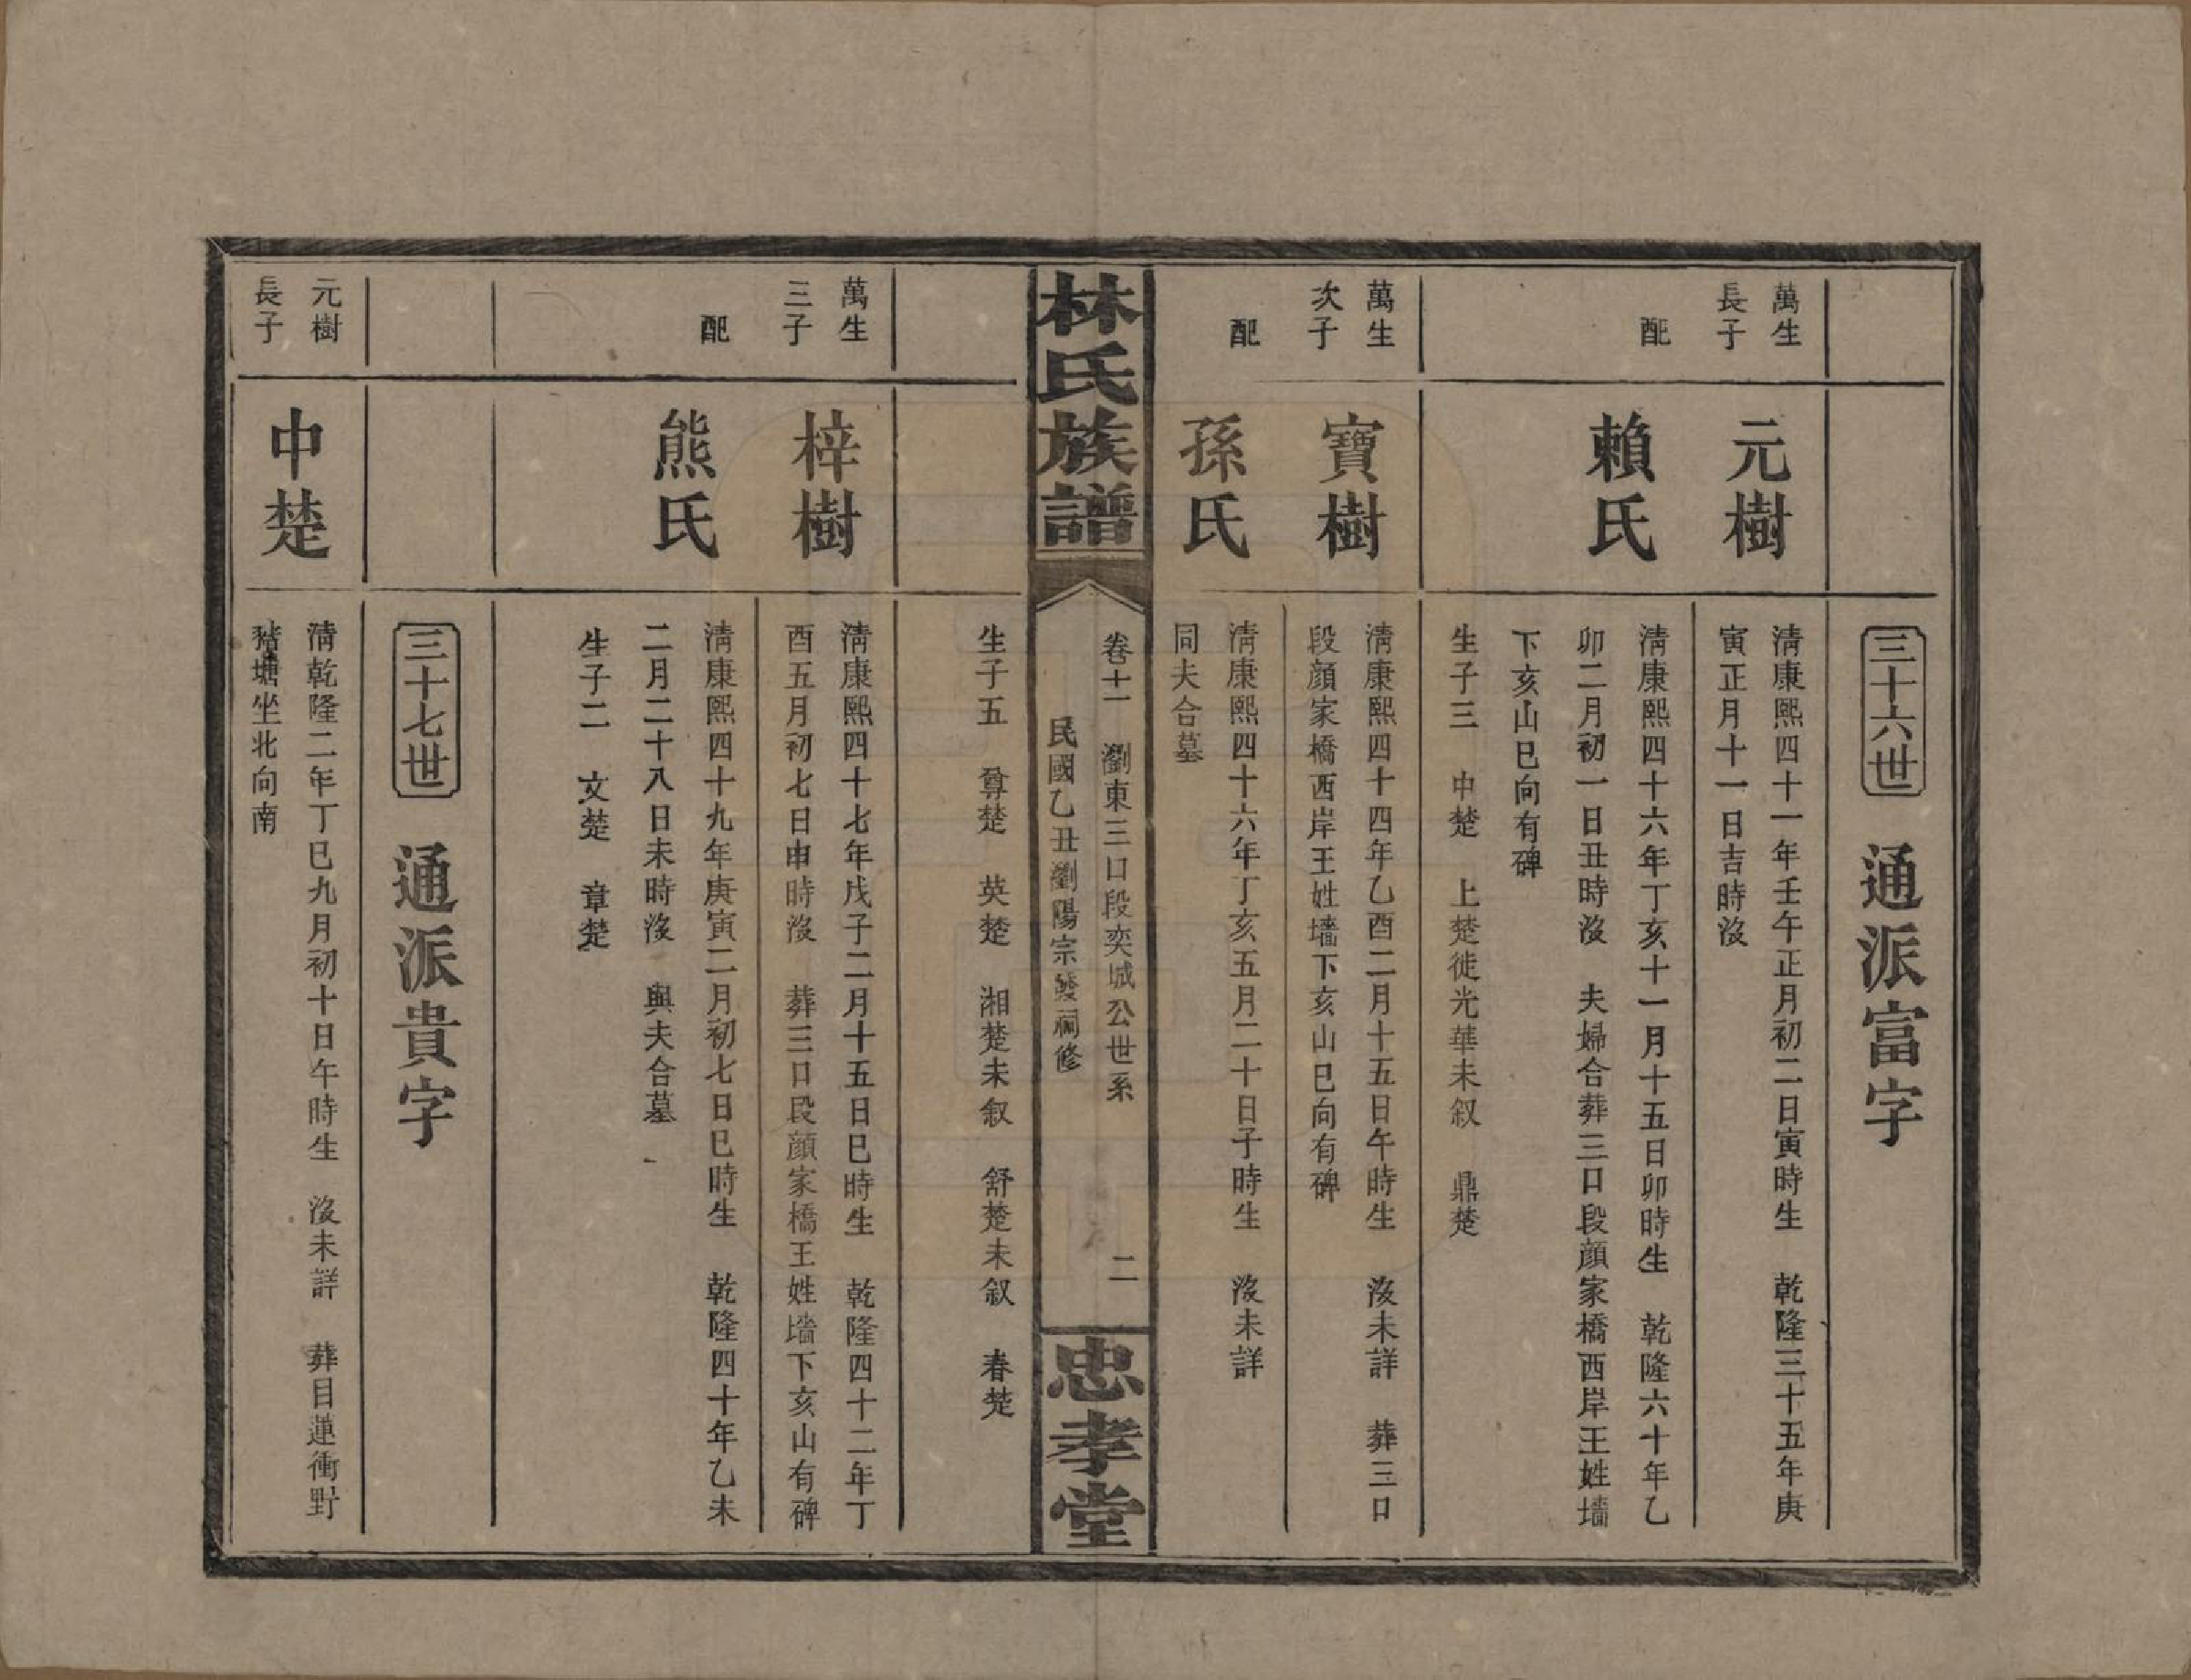 三十六世　通派富字
萬生
長子
元樹
清康熙四十一年壬午正月初二日寅時生　乾隆三十五年庚
寅正月十一日吉時沒
配
賴氏
清康熙四十六年丁亥十一月十五日卯時生　乾隆六十年乙
卯二月初一日丑時沒　夫婦合葬三口段顔家橋西岸王姓墻
下亥山巳向有碑
生子三　中楚　上楚徙光華未叙　鼎楚
萬生
次子
寶樹
清康熙四十四年乙酉二月十五日午時生　沒未詳　葬三口
段顔家橋西岸王姓墻下亥山巳向有碑
配
孫氏
清康熙四十六年丁亥五月二十日子時生　沒未詳
同夫合墓
林氏族譜
卷十一　瀏東三口段奕城公世系　二
民國乙丑瀏陽宗發祠修
忠孝堂
生子五　尊楚　英楚　湘楚未叙　舒楚未叙　春楚
萬生
三子
梓樹
清康熙四十七年戊子二月十五日巳時生　乾隆四十二年丁
酉五月初七日申時沒　葬三口段顔家橋王姓墻下亥山有碑
配
熊氏
清康熙四十九年庚寅二月初七日巳時生　乾隆四十年乙未
二月二十八日未時沒　與夫合墓
生子二　文楚　章楚
三十七世　通派貴字
元樹
長子
中楚
清乾隆二年丁巳九月初十日午時生　沒未詳　葬目蓮衝對
塘坐北向南